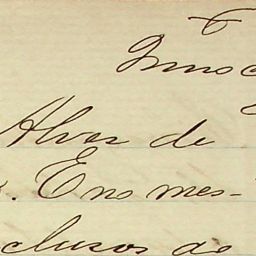 Innoc
Alves de
. E no mes-
clusos de